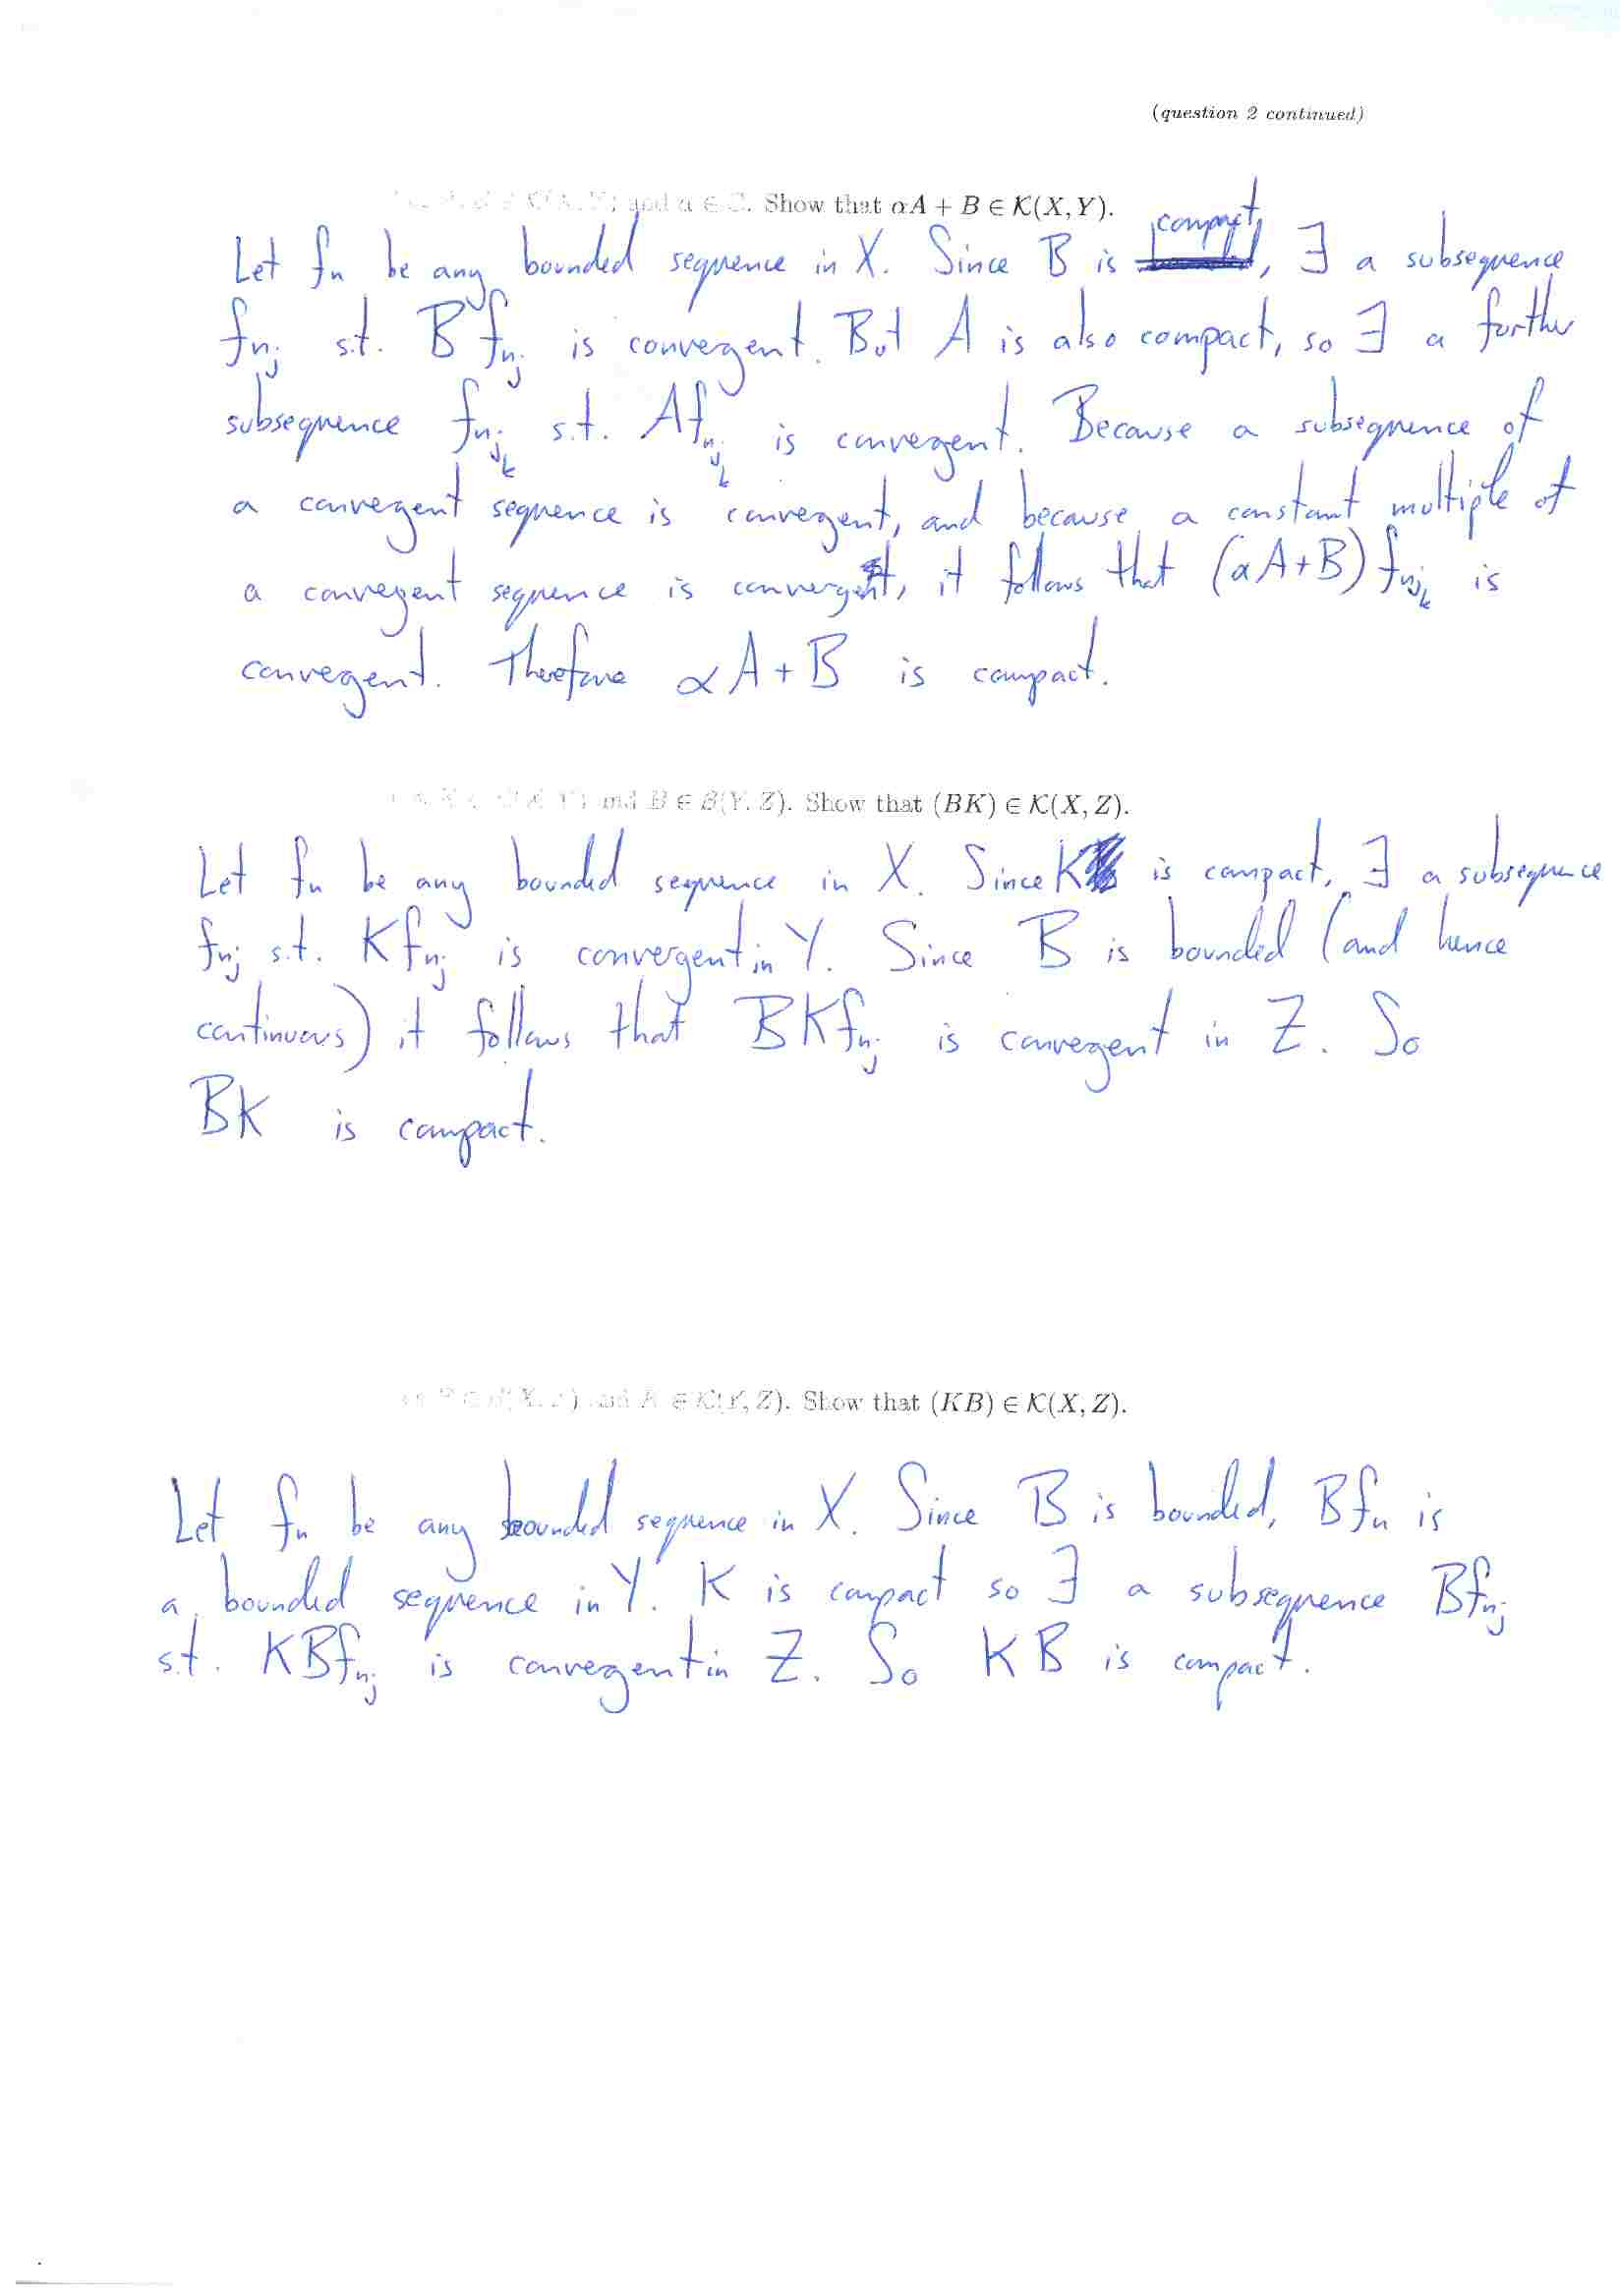 (question 2 continued)
and α ∈ C. Show that αA + B ∈ K(X, Y).
compact,
Let fn be any bounded sequence in X. Since B is , ∃ a subsequence
fnj s.t. B fnj is convergent. But A is also compact, so ∃ a further
subsequence fnjk s.t. Afnjk is convergent. Because a subsequence of
a convergent sequence is convergent, and because a constant multiple of
a convergent sequence is convergent, it follows that (αA+B) fnjk is
convergent. Therefore αA+B is compact.
and B ∈ B(Y, Z). Show that (BK) ∈ K(X, Z).
Let fn be any bounded sequence in X. Since K is compact, ∃ a subsequence
fnj s.t. Kfnj is convergent in Y. Since B is bounded (and hence
continuous) it follows that BKfnj is convergent in Z. So
BK is compact.
and K ∈ K(Y, Z). Show that (KB) ∈ K(X, Z).
Let fn be any bounded sequence in X. Since B is bounded, Bfn is
a bounded sequence in Y. K is compact so ∃ a subsequence Bfnj
s.t. KBfnj is convergent in Z. So KB is compact.